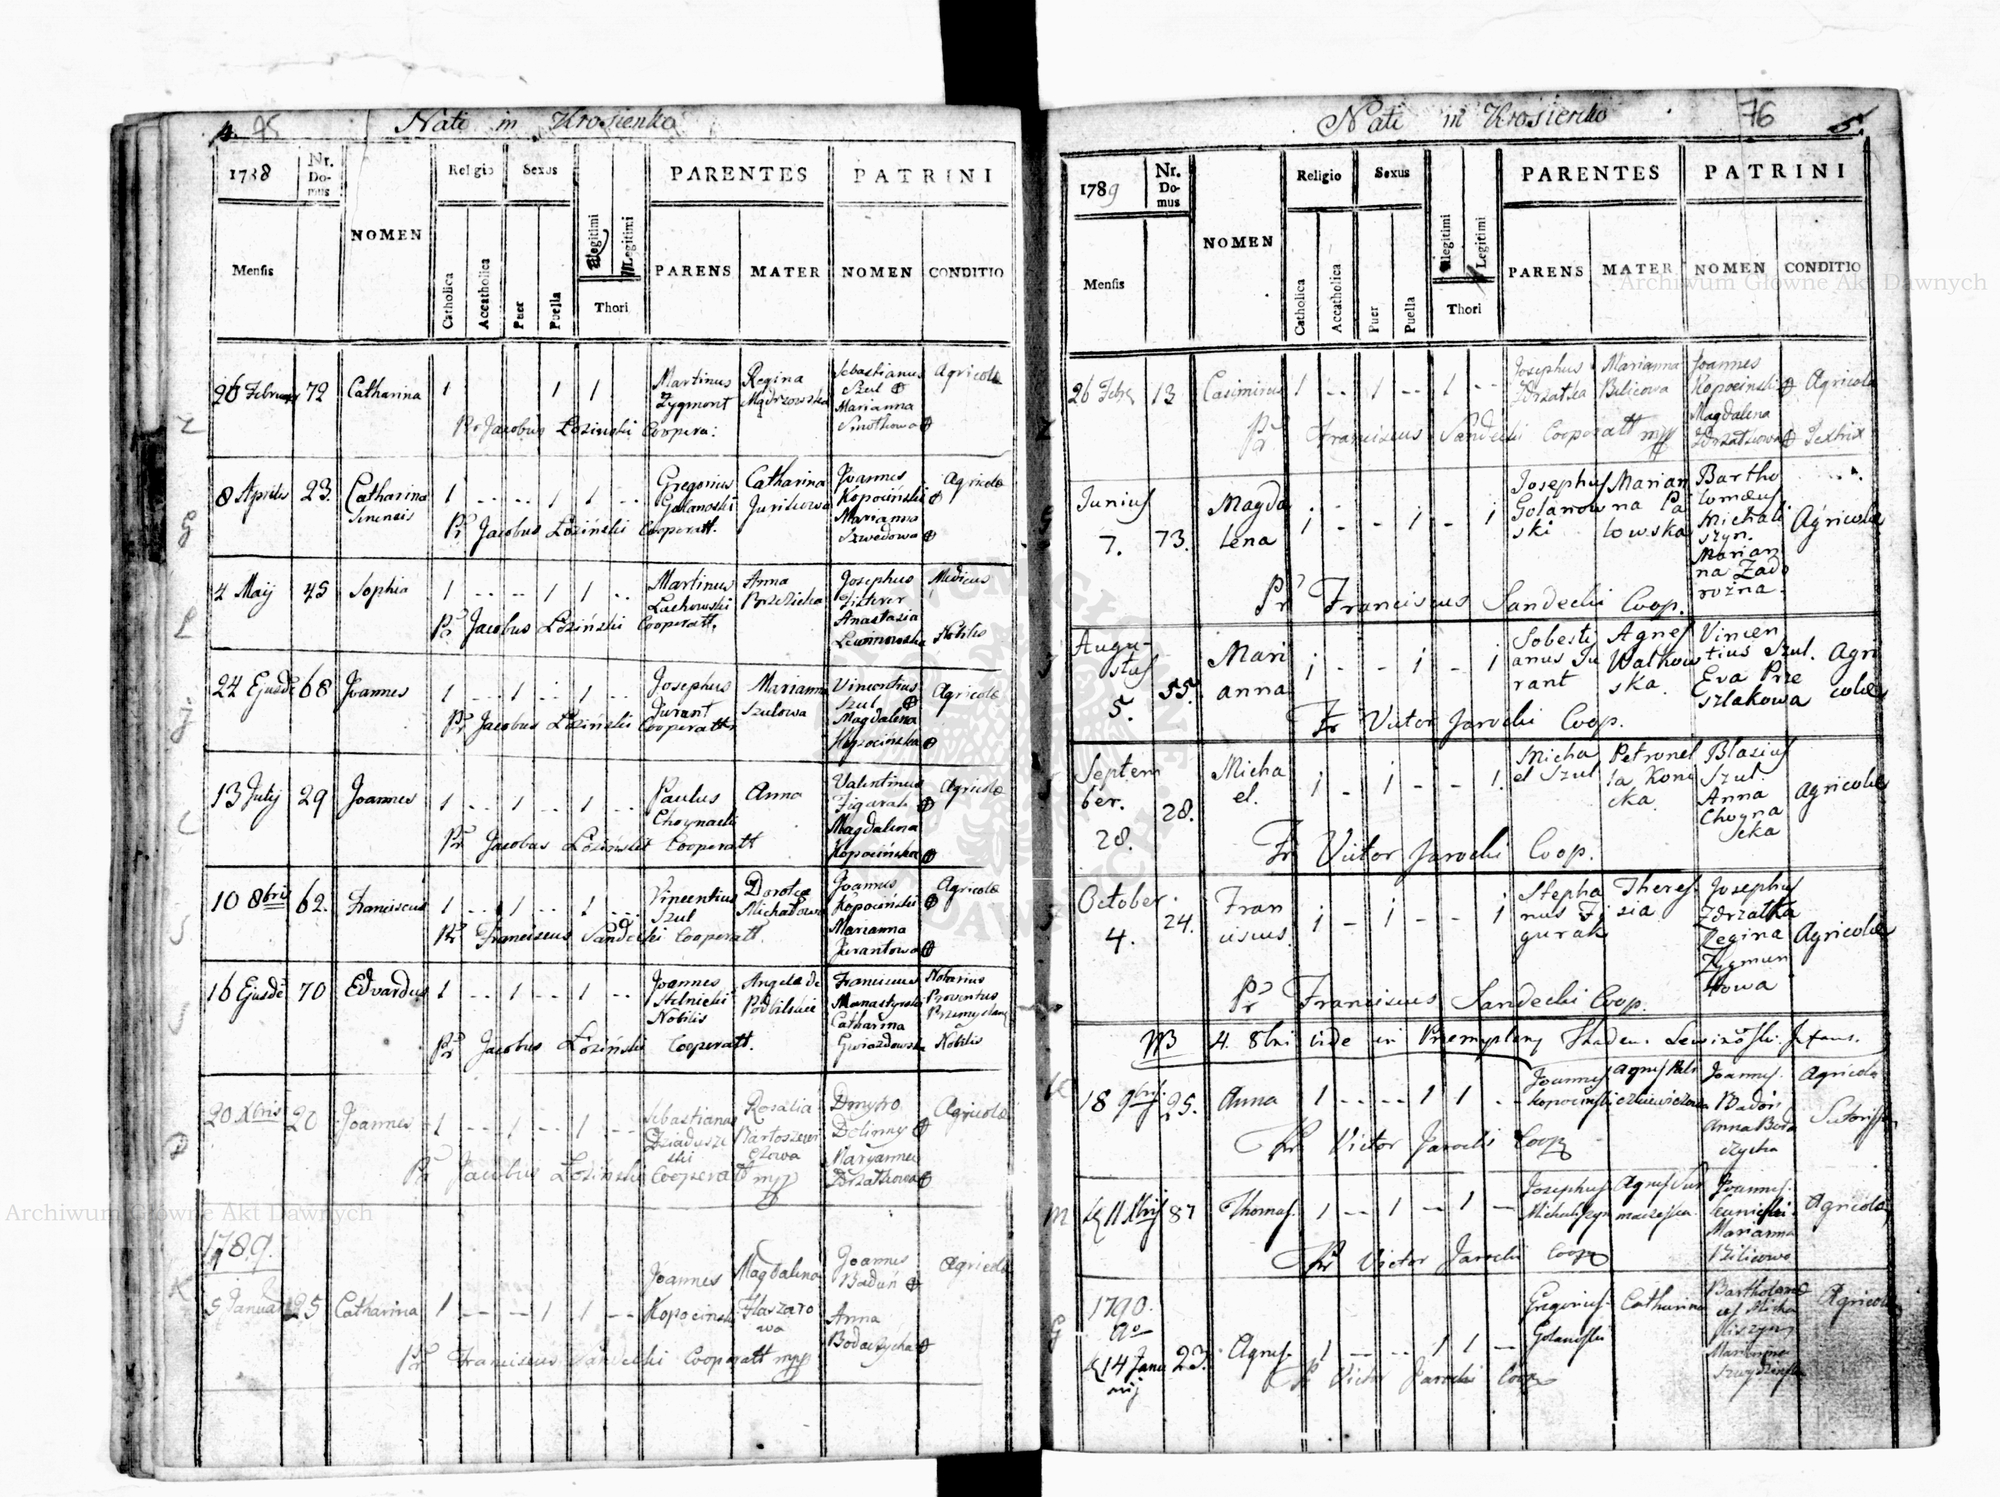 4. 75 Nati in Krosienko
1788 Nr. Do- mus NOMEN Religio Sexus Illegitimi Legitimi PARENTES PATRINI
Mensis Catholica Accatholica Puer Puella Thori PARENS MATER NOMEN CONDITIO
26 Februar 72 Catharina 1 1 1 Martinus Zygmont Regina Mądrzowska Sebastianus Szul Marianna Smotkowa Agricolæ
Pr Jacobus Łoziński Coopera:
8 Aprilis 23. Catharina Senensis 1 1 1 Gregorius Golanoski Catharina Juriszowa Joannes Kopociński Marianna Szwedowa Agricolæ
Pr Jacobus Łoziński Cooperatt.
4 Maij 45 Sophia 1 1 1 Martinus Luchowski Anna Josephus Anastasia Medicus Nobilis
Pr Jacobus Łoziński Cooperatt.
24 Ejusdē 68 Joannes 1 1 1 Josephus Jurant Marianna Szulowa Vincentius Szul Magdalena Kopocińska Agricolæ
Pr Jacobus Łoziński Cooperattr
13 Julij 29 Joannes 1 1 1 Paulus Choynacki Anna Valentinus Figurak Magdalena Kopocińska Agricolæ
Pr Jacobus Łoziński Cooperatt
10 8bris 62. Franciscus 1 1 1 Vincentius Szul Dorotea Michałowa Joannes Kopociński Marianna Jurantowa Agricolæ
Pr Franciscus Sandecki Cooperatt.
16 Ejusdē 70 Edvardus 1 1 1 Joannes Stelnicki Nobilis Angela de Podbilskie Franciscus Monastyrski Catharina Gwiazdowska Notarius Proventus Przemyslan Nobilis
Pr Jacobus Łoziński Cooperatt.
20 Xbris 20 Joannes 1 1 1 Sebastianus Dziaduszeski Rosalia Bartoszewiczowa Dmytro Dolinny Maryanna Zdrzałkowa Agricolæ
Pr Jacobus Łoziński Cooperatt mpp
1789.
5 Januar 25 Catharina 1 1 1 Joannes Kopocinski Magdalena Joannes Baduń Anna Bodaczycha Agricolæ
Pr Franciscus Sandecki Cooperatt mpp
Z
G
L
J
C
S
D
K
Nati in Krosienko 76 5.
1789 Nr. Do- mus NOMEN Religio Sexus Illegitimi Legitimi PARENTES PATRINI
Mensis Catholica Accatholica Puer Puella Thori PARENS MATER NOMEN CONDITIO
26 Febr 13 Casimirus 1 1 1 Josephus Zdrzałka Marianna Bilicowa Joannes Kopocinski Magdalena Zdrzałkowa Agricola Textrix
Pr Franciscus Sandecki Cooperatt mpp
Junius 7. 73. Magdalena 1 1 1 Josephus Golanowski Marianna Pałowska Bartholomæus Michaliszyn. Marianna Zadorożna. Agricolæ
Pr Franciscus Sandecki Coop.
Augustus 5. 55. Marianna 1 1 1 Sobestianus Jurant Agnes Walkowska. Vincentius Szul. Eva Przeszlakowa Agricolæ
Fr Victor Jarocki Coop.
September. 28. 28. Michael. 1 1 1. Michael Szul Petronella Konicka. Blasius Szul. Anna Choynacka Agricolæ
Fr Victor Jarocki Coop.
October. 4. 24. Franciscus. 1 1 1 Stephanus Figurak Theresia Josephus Zdrzałka Regina Zygmuntowa Agricolæ
Pr Franciscus Sandecki Coop.
NB 4. 8bri vide in Przemyslany
18 9bris 25. Anna 1 1 1 Joannes Kopocinski Agnes Joannes. Badoń Anna Bodaczycha Agricola
Fr Victor Jarocki Coop
11 Xbris 87 Thomas. 1 1 1 Josephus Michaliszyn Agnes Joannes. Marianna Bilicowa Agricolæ
Fr Victor Jarocki Coop
1790.
14 Januarij 23. Agnes. 1 1 1 Gregorius Golanoski Catharina Bartholomæus Michaliszyn Marianna Agricolæ
Fr Victor Jarocki Coop
Archiwum Główne Akt Dawnych
Archiwum Główne Akt Dawnych